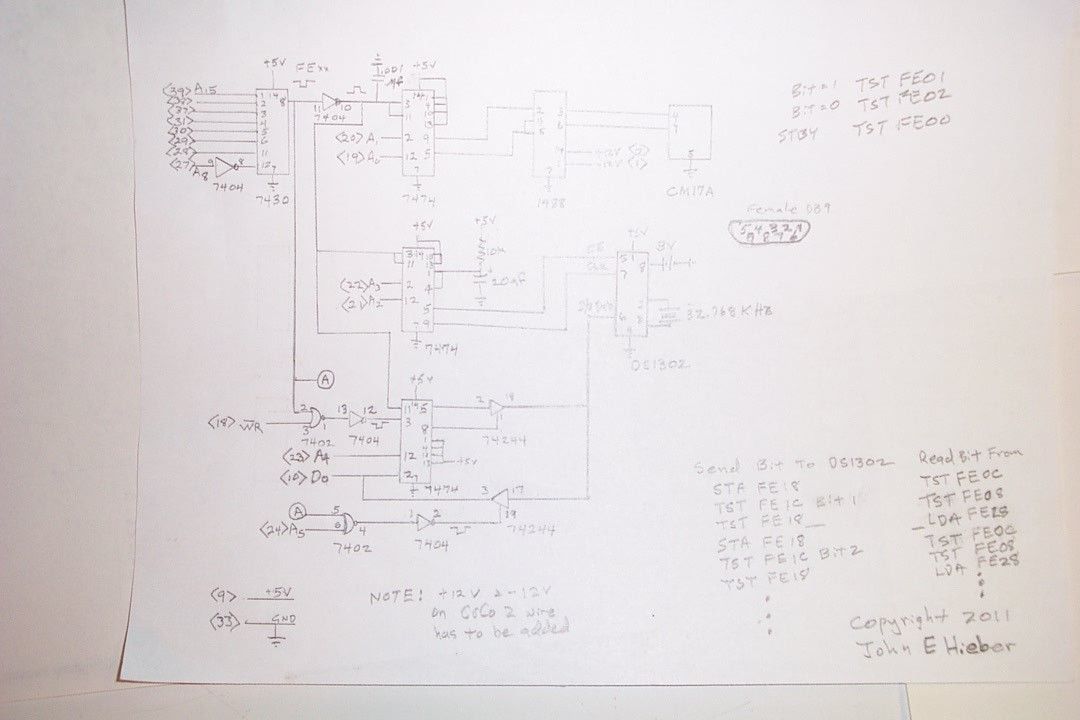 +5V
FExx
.001
+5V
<29> A15
7404
<20> A1
<19> A0
<27> A8
7404
7430
7474
1488
+12V
-12V
CM17A
Bit=1 TST FE01
Bit=0 TST FE02
STBY TST FE00
Female DB9
5 4 3 2 1
9 8 7 6
+5V
+5V
10K
20µf
<22> A3
<21> A2
7474
+5V
3V
32.768 KHz
DS1302
A
+5V
<18> WR
7402
7404
74244
<23> A4
<10> D0
+5V
7474
A
<24> A5
7402
7404
74244
Send Bit To DS1302
STA FE18
TST FE1C Bit 1
TST FE18
STA FE18
TST FE1C Bit 2
TST FE18
Read Bit From
TST FE0C
TST FE08
LDA FE28
TST FE0C
TST FE08
LDA FE28
<9> +5V
<33> GND
NOTE! +12V & -12V
on CoCo 2 wire
has to be added
Copyright 2011
John E Hieber